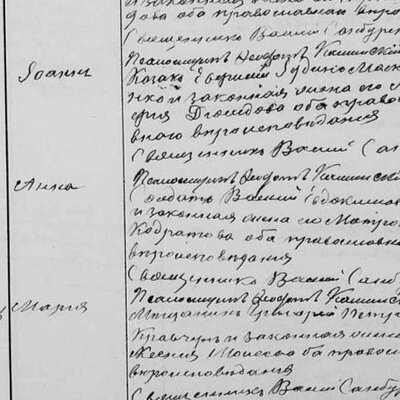 и законная жена его
дова оба православнаго веро
Священникъ Василій Самбур
Іоаннъ
Псаломщикъ Ѳеодотъ Калинскій
Козакъ Евфимій
нко и законная жена его М
рія Діомидова оба право
внаго вероисповѣданія
Священникъ Василій Сам
Анна
Псаломщикъ Ѳеодотъ Калинскій
Солдатъ Василій Евдокимов
и законная жена его Матро
Кодратова оба православна
вероисповѣданія
Священникъ Василій Самбу
Марія
Псаломщикъ Ѳеодотъ Калинс
Мещанинъ Григорій Петр
Кравчеръ и законная жена
Ксенія Моисеева оба правос
вероисповѣданія
Священникъ Василій Самбур